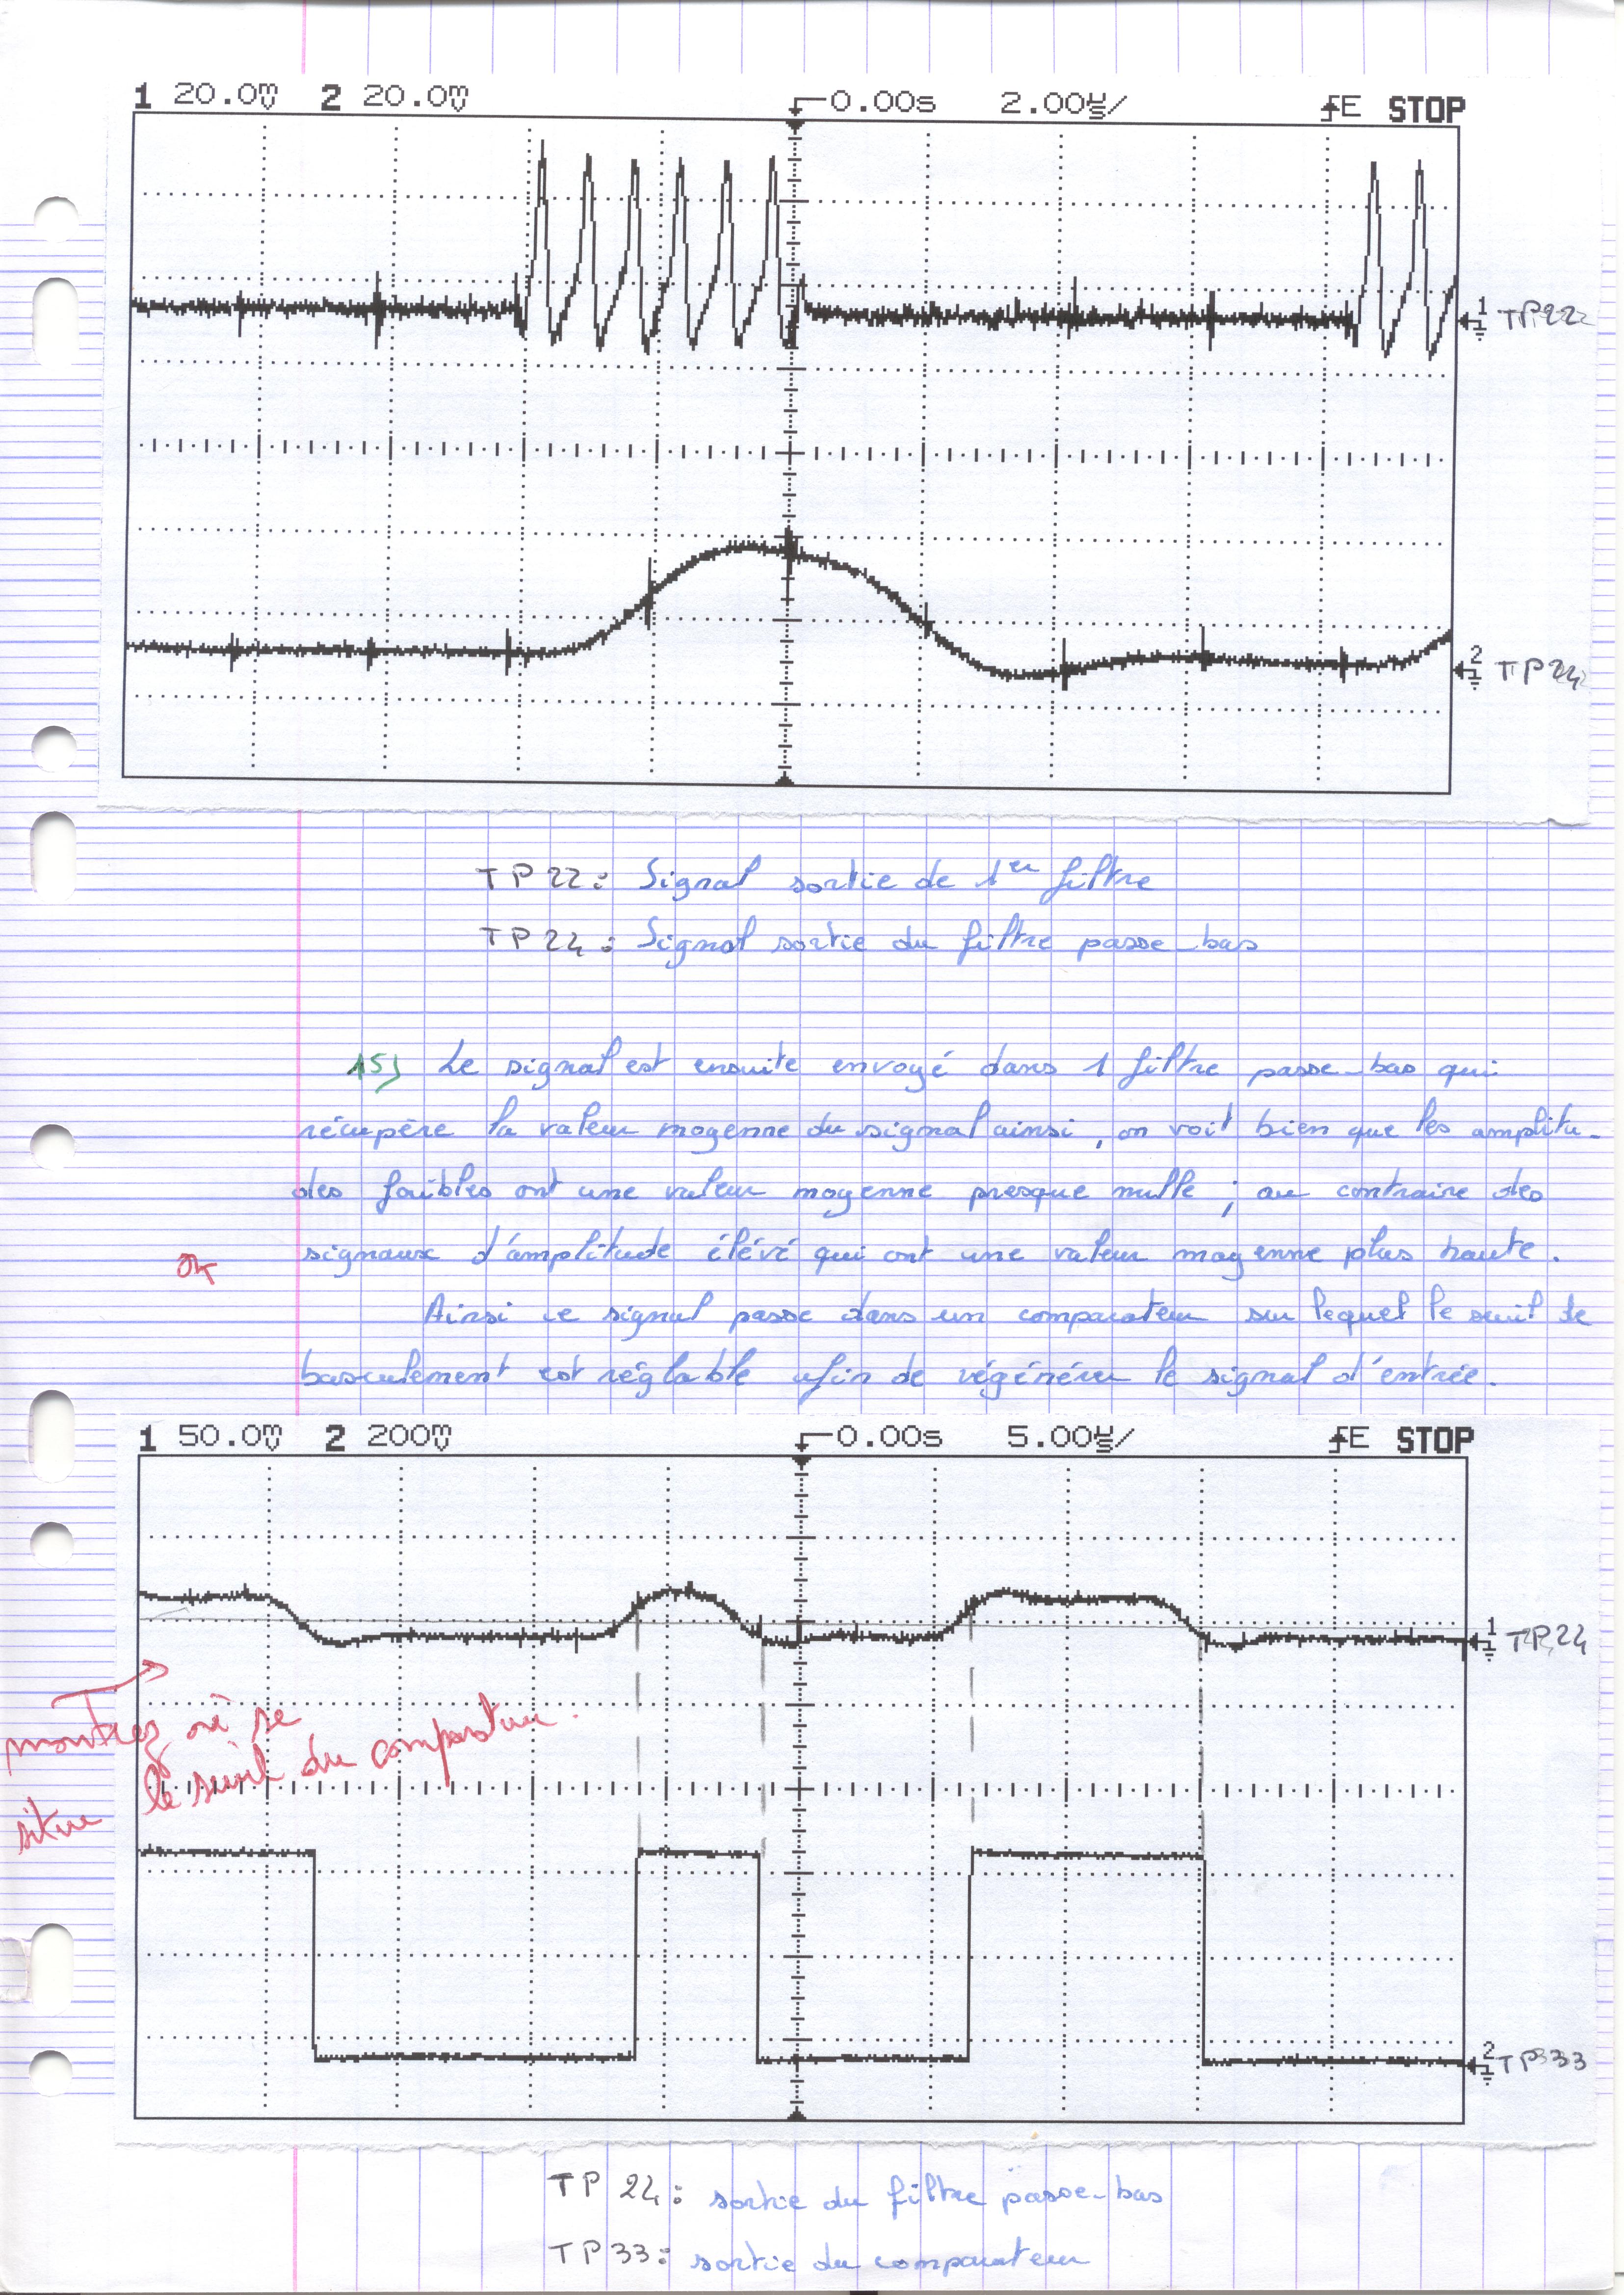 1 20.0mV 2 20.0mV 0.00s 2.00µs/ ƒE STOP
1 TP22
2 TP24
TP22: Signal sortie de 1er filtre
TP24: Signal sortie du filtre passe-bas
15) Le signal est ensuite envoyé dans 1 filtre passe-bas qui
récupère la valeur moyenne du signal ainsi, on voit bien que les amplitu-
des faibles ont une valeur moyenne presque nulle ; au contraire des
signaux d'amplitude élévé qui ont une valeur moyenne plus haute.
OK
Ainsi ce signal passe dans un comparateur sur lequel le seuil de
basculement est réglable afin de régénérer le signal d'entrée.
1 50.0mV 2 200mV 0.00s 5.00µs/ ƒE STOP
1 TP24
montrez où se
situe le seuil du comparateur.
2 TP33
TP24: sortie du filtre passe-bas
TP33: sortie du comparateur